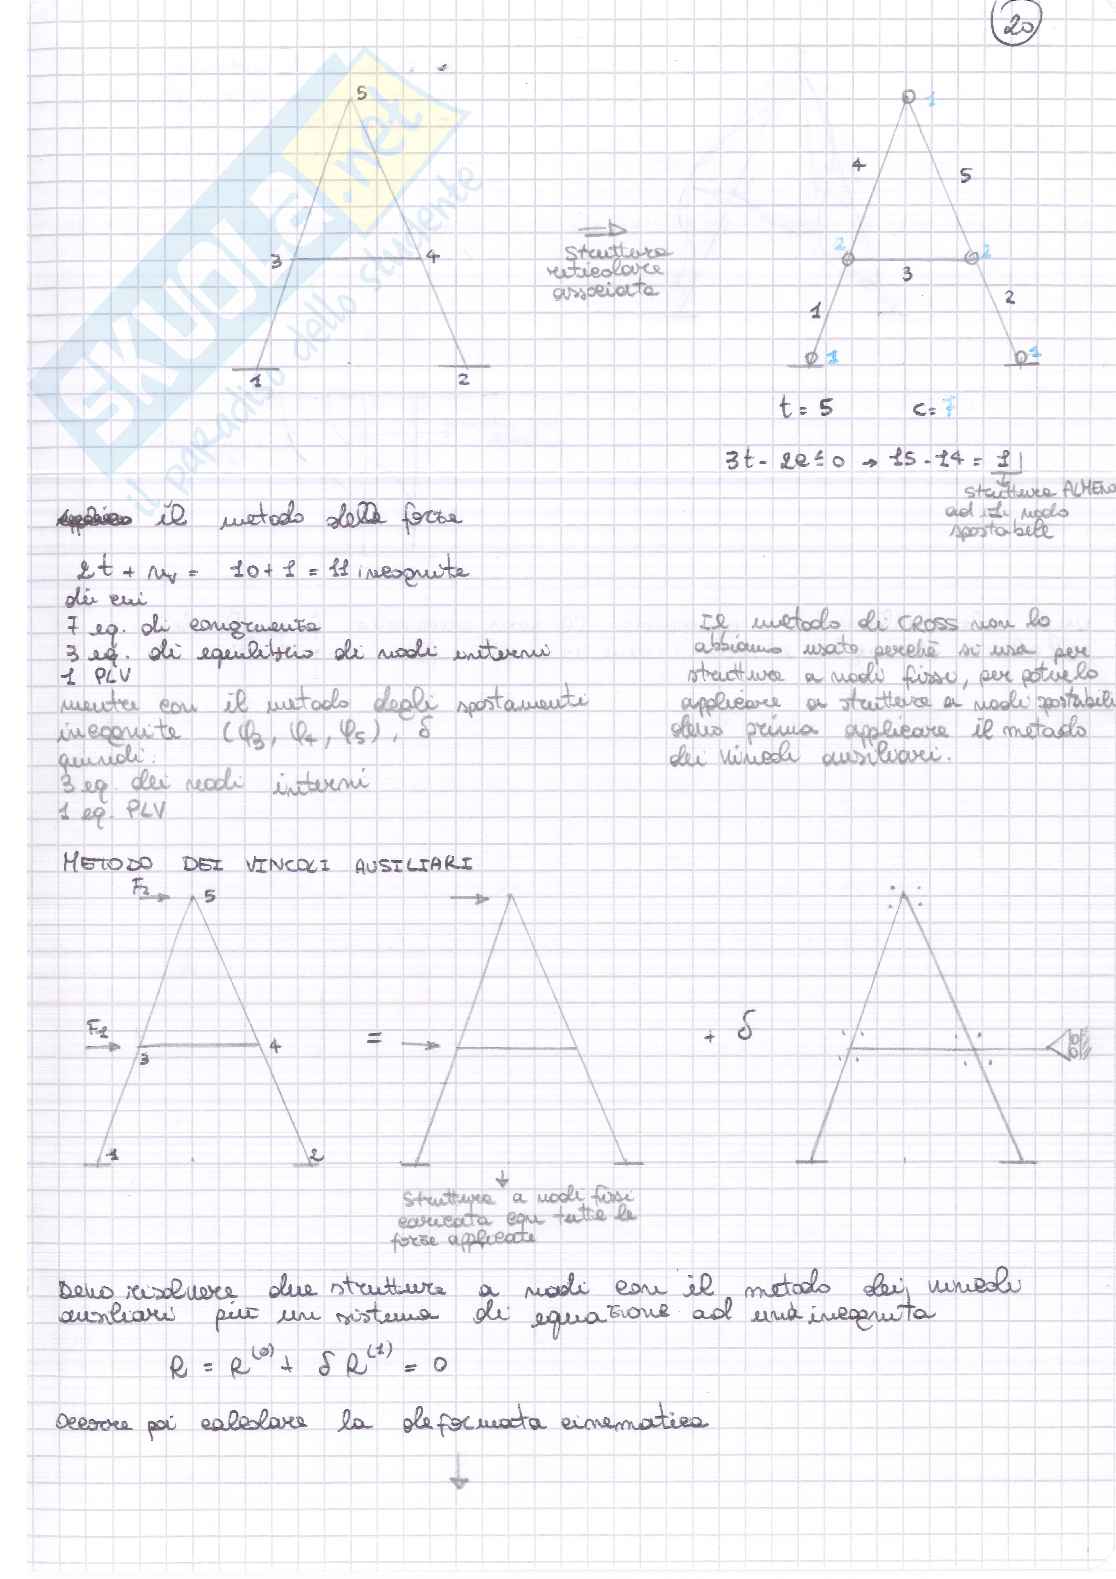 20
5
3
4
1
2
SKUOLA.net
il paradiso dello studente
⇒
Struttura
reticolare
associata
1
4
5
2
2
3
1
2
1
1
t = 5 c = 7
3t - 2c ≤ 0 → 15 - 14 = 1
struttura ALMENO
ad 1 nodo
spostabile
il metodo delle forze
2t + nv = 10 + 1 = 11 incognite
di cui
7 eq. di congruenza
3 eq. di equilibrio di nodi interni
1 PLV
mentre con il metodo degli spostamenti
incognite (φ3, φ4, φ5), δ
quindi:
3 eq. dei nodi interni
1 eq. PLV
Il metodo di CROSS non lo
abbiamo usato perchè si usa per
strutture a nodi fissi, per poterlo
applicare a strutture a nodi spostabili
devo prima applicare il metodo
dei vincoli ausiliari.
METODO DEI VINCOLI AUSILIARI
F2
5
F1
3
4
1
2
=
+ δ
Struttura a nodi fissi
caricata con tutte le
forze applicate
Devo risolvere due strutture a nodi con il metodo dei vincoli
ausiliari più un sistema di equazione ad una incognita
R = R(0) + δ R(1) = 0
Occorre poi calcolare la deformata cinematica